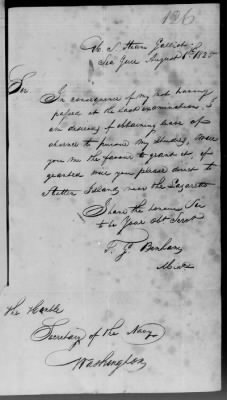 126
U. S. Steam Galliot
Sea Gull August 1st 182
Sir,
In consequence of my not having
passed at the last examination, I
am desirous of obtaining leave of
absence to pursue my studies, would
you do me the favour to grant it, if
granted will you please direct to
Staten Island, near the Lazaretto
I have the honour Sir
to be Your Obt Servt
T. G. Benham
Mid
The Honble
Secretary of the Navy
Washington